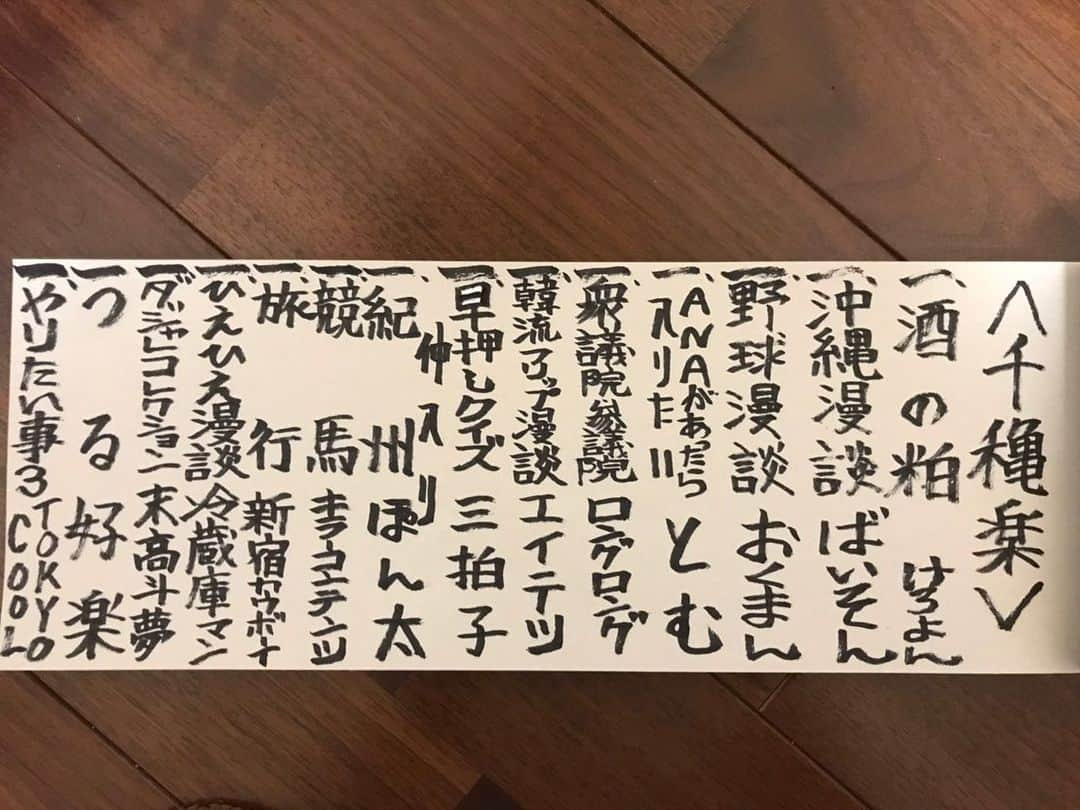 〈千穐楽〉
一、酒の粕 けちょん
一、沖縄漫談 ばいそん
一、野球漫談 おくまん
一、ANAがあったら入りたい!! とむ
一、衆議院参議院 ロングロング
一、韓流アップ漫談 エイテツ
一、早押しクイズ 三拍子
仲入り
一、紀州 ぽん太
一、競馬 キラーコンテンツ
一、旅行 新宿カウボーイ
一、ひえひえ漫談 冷蔵庫マン
一、ダジャレコレクション 末高斗夢
一、つる 好楽
一、やりたい事3 TOKYO COOL